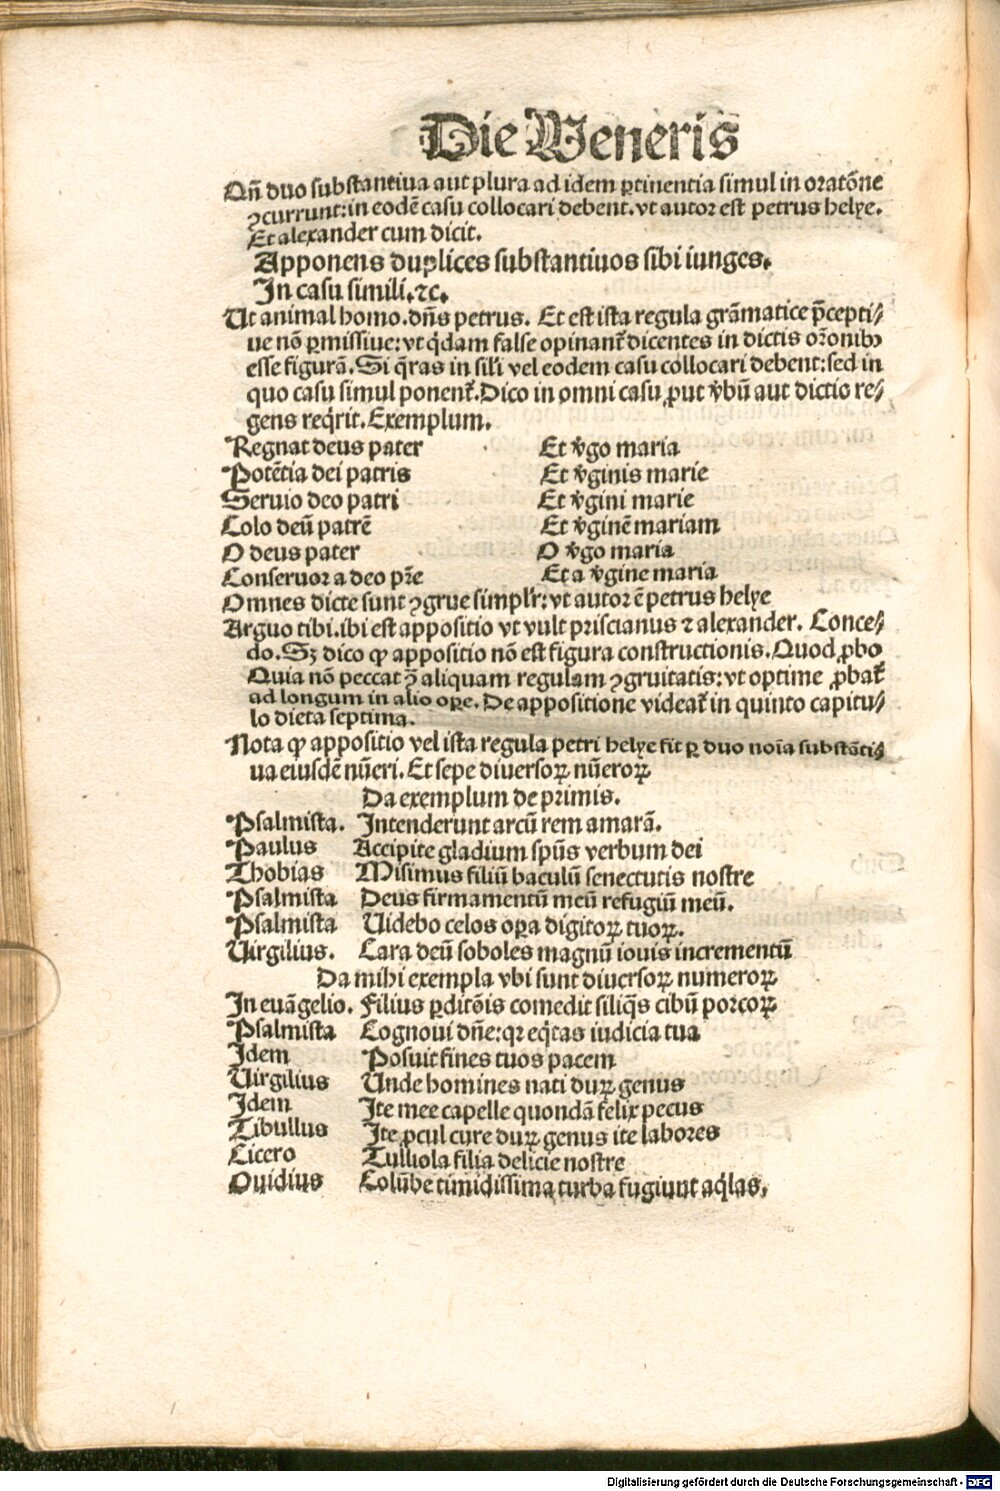 Die Veneris
Qñ duo substantiua aut plura ad idem ꝑtinentia simul in oratõne
ꝯcurrunt: in eodẽ casu collocari debent. vt autor est petrus helye.
Et alexander cum dicit.
Apponens duplices substantiuos sibi iunges.
In casu simili. ⁊c.
Ut animal homo. dñs petrus. Et est ista regula grãmatice p̃cepti⸗
ue nõ ꝑmissiue: vt q̇dam false opinant᷑ dicentes in dictis or̃onibꝰ
esse figurã. Si q̃ras in sil̃i vel eodem casu collocari debent: sed in
quo casu simul ponent᷑. Dico in omni casu ꝓut v̓bũ aut dictio re⸗
gens req̇rit. Exemplum.
Regnat deus pater Et v̓go maria
Potẽtia dei patris Et v̓ginis marie
Seruio deo patri Et v̓gini marie
Colo deũ patrẽ Et v̓ginẽ mariam
O deus pater O v̓go maria
Conseruor a deo pr̃e Et a v̓gine maria
Omnes dicte sunt ꝯgrue simpl'r: vt autor ẽ petrus helye
Arguo tibi. ibi est appositio vt vult priscianus ⁊ alexander. Conce⸗
do. Sꝫ dico ꝙ appositio nõ est figura constructionis. Quod ꝓbo
Quia nõ peccat ꝯ̃ aliquam regulam ꝯgruitatis: vt optime ꝓbat᷑
ad longum in alio oꝑe. De appositione videat᷑ in quinto capitu⸗
lo dieta septima.
Nota ꝙ appositio vel ista regula petri helye fit ꝑ duo noĩa substãti⸗
ua eiusdẽ nũeri. Et sepe diuersoꝝ nũeroꝝ
Da exemplum de primis.
Psalmista. Intenderunt arcũ rem amarã.
Paulus Accipite gladium spũs verbum dei
Thobias Misimus filiũ baculũ senectutis nostre
Psalmista Deus firmamentũ meũ refugiũ meũ.
Psalmista Uidebo celos oꝑa digitoꝝ tuoꝝ.
Uirgilius. Cara deũ soboles magnũ iouis incrementũ
Da mihi exempla vbi sunt diuersoꝝ numeroꝝ
In euãgelio. Filius ꝑditõis comedit siliq̇s cibũ porcoꝝ
Psalmista Cognoui dñe: qr eq̇tas iudicia tua
Idem Posuit fines tuos pacem
Uirgilius Unde homines nati duꝝ genus
Idem Ite mee capelle quondã felix pecus
Tibullus Ite ꝓcul cure duꝝ genus ite labores
Cicero Tulliola filia delicie nostre
Ouidius Colũbe timidissima turba fugiunt aq̇las.
Digitalisierung gefördert durch die Deutsche Forschungsgemeinschaft - DFG